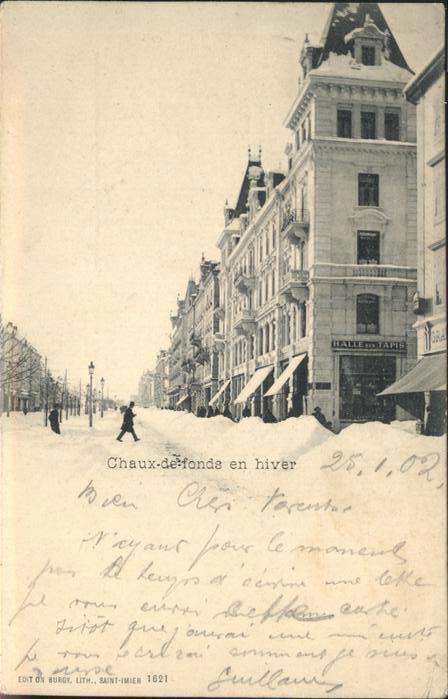 HALLE AUX TAPIS
Chaux-de-fonds en hiver
25.1.02.
Bien Chers Parents
N'ayant pour le moment
pas le temps d'écrire une lettre
je vous envoi cette carte
sitôt que j'aurai une minute
je vous écrirai comment je suis
Guillaume
EDITION BURGY, LITH., SAINT-IMIER 1621